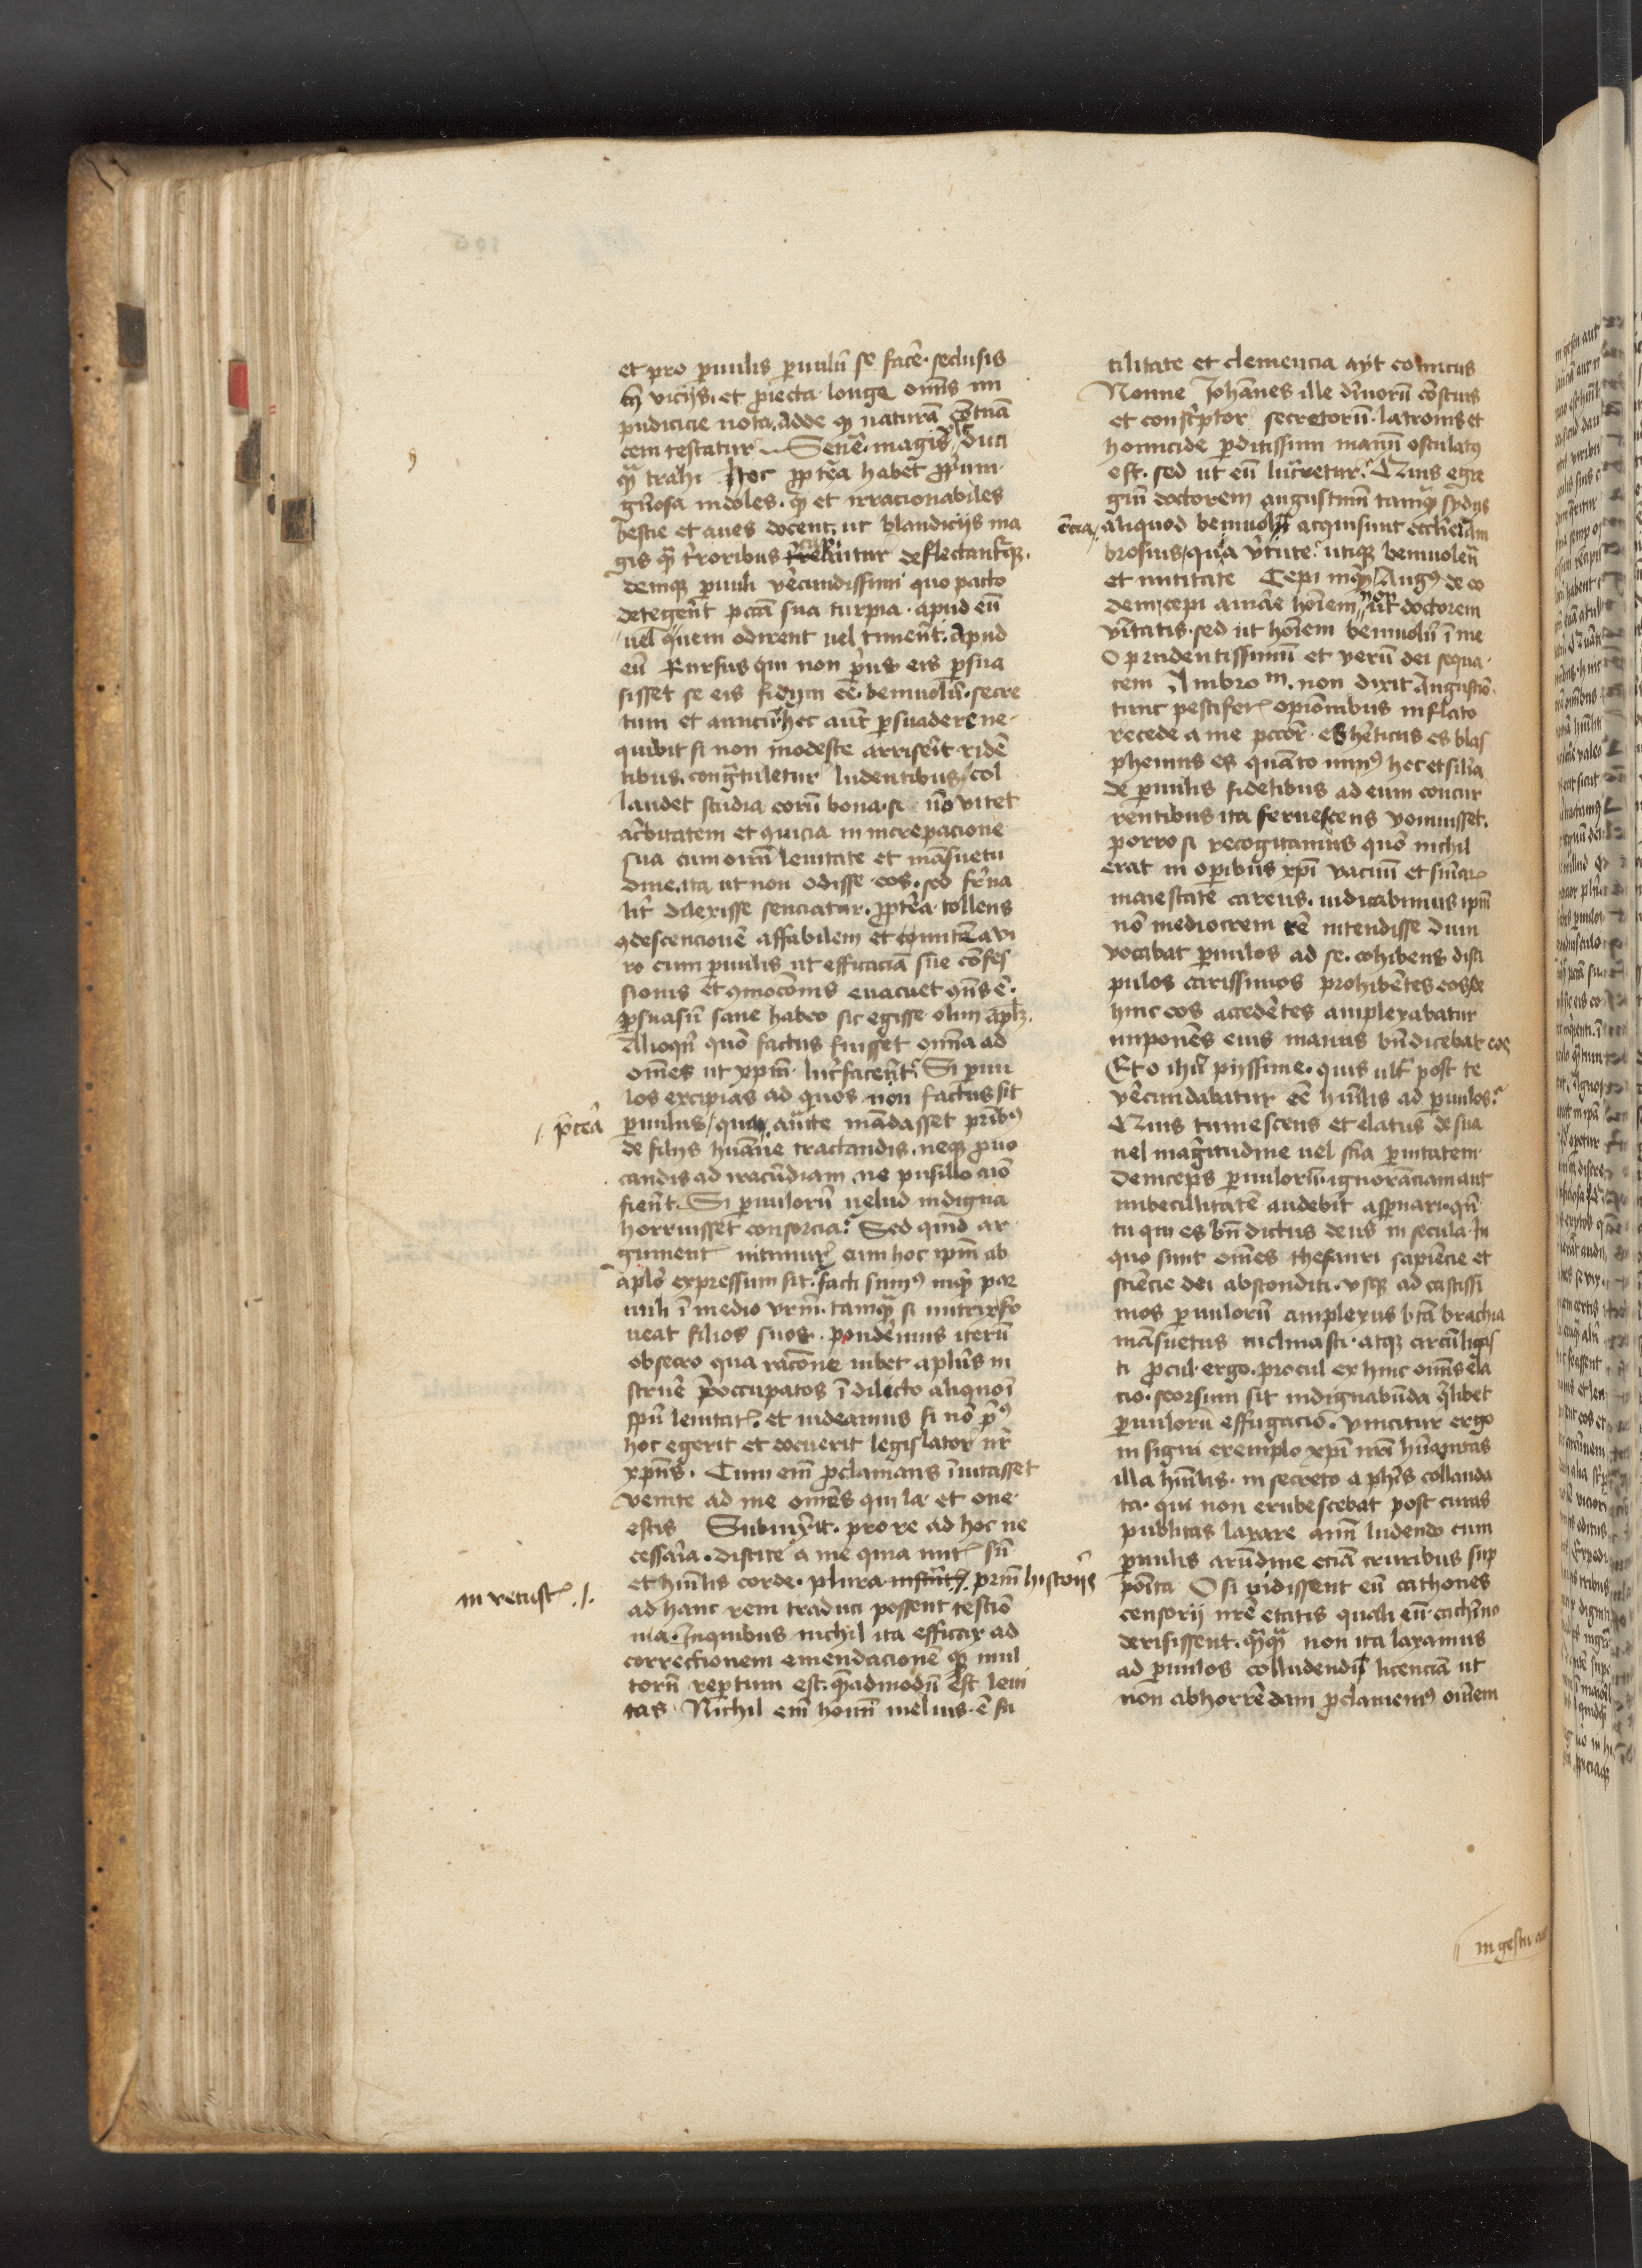 et pro puulis puulū se facē· seclusis
tn̄ viciis· et ꝓiecta longe om̄is im
pudicicie nota· adde ꝙ naturā
cem testatur Senē· magis duci
qͣ trahi hoc ꝓpterea habet ꝓpium·
gn̄osa indoles· et irracionabiles
bestie et aues docent· ut blandiciis ma
gis qͣ t̄roribus deflectantur
deniqꝫ puuli verecundissimi quo pacto
detegent pctā sua turpia · apud eū
uel quem odirent uel timerent· Apud
eū Rursus qui non prius eis psua
sisset se eis fidum eē· beniuolū· secre
tum et amicū hec aut psuadere ne
quibit si non modeste arriserit ridē
tibus· congratuletur ludentibus/ col
laudet studia eorū bona· si nō vitet
acerbitatem et ꝯuicia in increpacione
sua cum omī lenitate et māsuetu
dine· ita ut non odisse eos· sed frā
lit̄ dilexisse senciatur· ꝓpterea tollens
ꝯdescencionē affabilem et comitē a vi
ro cum puulis ut efficaciā sue cōfes
sionis et ꝯmocōnis euacuet
psuasū sane habeo sic egisse olim aplm̄·
Alioqn̄ quō factus fuisset omīa ad
om̄es ut xp̄m lucrifaceret· Si puu
los excipias ad quos nōn factus sit
p̄terea
puulus/ aut̄ mādasset
de filiis humane tractandis· neqꝫ ꝓuo
candis ad iracūdiam ne pusillo aīo
fierent· Si puulorū uelud indigna
horruisset consorcia· Sed quid ar
gumentis nitimur cum hoc ipm̄ ab
aplō expressum sit· facti sumꝰ inqͥ par
uuli ī medio vrm̄· tamqͣ si nutrix fo
ueat filios suos· ponderemus iterū
obsecro qua racōne iubet aplūs in
struē p̄occupatos ī delicto aliquo ī
spū lenitatis· et uideamus si nō pꝰ
hoc egerit et docuerit legislator nr̄
xp̄us· Cum enī ꝓclamans īuitasset
venite ad me omēs qui la· et one·
estis Subiūxit· pro re ad hoc ne
cessaria· discite a me quia mitis sū
et hūilis corde· plura historiis
in vetustis ./.
ad hanc rem traduci possent testio
nia· Inquibus nichil ita efficax ad
correctionem emendacionē qꝫ mul
torū reptum est· quēadmodū est leni
tas· Nichil enī hoīm melius· ē fa
cilitate et clemencia ayt comicus
Nonne Johānes ille dīuorū cōscius
et conscriptor secretorū· latronis et
homicide pditissimi manū osculatꝰ
est· sed ut eū lucraretur· Quis egre
giū doctorem augustinū tamqͣ sydus
ecciā
aliquod beniuolū acquisiuit
brosius/ qua virtute utiqꝫ beniuolen̄
et Cepi inqͥ Augꝰ de eo
dem/ cepi amare hoīem non ut doctorem
veritatis· sed ut hoīem beniuolū ī me
O prudentissimū et verū dei sequa·
cem Ambro m· non dixit Augustīo·
tunc pestiferis opinionibus inflato
recede a me pccōr es heticus es blas
phemus es quanto minꝰ hec et silia
de puulis fidelibus ad eum concur
rentibus ita feruescens vomuisset·
porro si recogitamus quō nichil
erat in operibus xp̄i vacuū et
maiestate carens· iudicabimus ipm̄
nō mediocrem rē intendisse dum
vocabat puulos ad se· cohibens disci
pulos carissimos prohibētes eos de
hinc eos accedētes amplexabatur
imponēs eius manus bn̄dicebat eos
Et o ihū piissime· quis ultͣ post te
verecundabatur eē hūilis ad puulos·
Quis tumescens et elatus de sua
uel magnitudine uel scia puitatem
Deinceps puulorū· ignoranciam aut
imbecillitatē audebit asp̄nari· qn̄
tu qui es bn̄dictus deus in secula· In
quo sunt om̄es thesauri sapiēcie et
sciēcie dei absconditi· vsqꝫ ad castissi
mos puulorū amplexus btā brachia
māsuetus inclinasti· atqꝫ circūligas
ti ꝓcul ergo· procul ex hinc omīs ela
cio· seorsum sit indignabūda qlibet
puulorū effugacio· vincitur ergo
insigni exemplo xp̄i nrī humanitas
illa hūilis· in secreto a phīs collauda
ta· qui non erubescebat post curas
publicas laxare anīm ludendo cum
puulis arūdine eciā cruribus sup
posita O si vidissent eū cathones
censorii nrē etatis quali eū cachīno
derisissent· qͣqͣ non ita laxamus
ad puulos colludendi licenciā ut
non abhorrēdam ꝓclamemꝰ omēm
in gestu aut